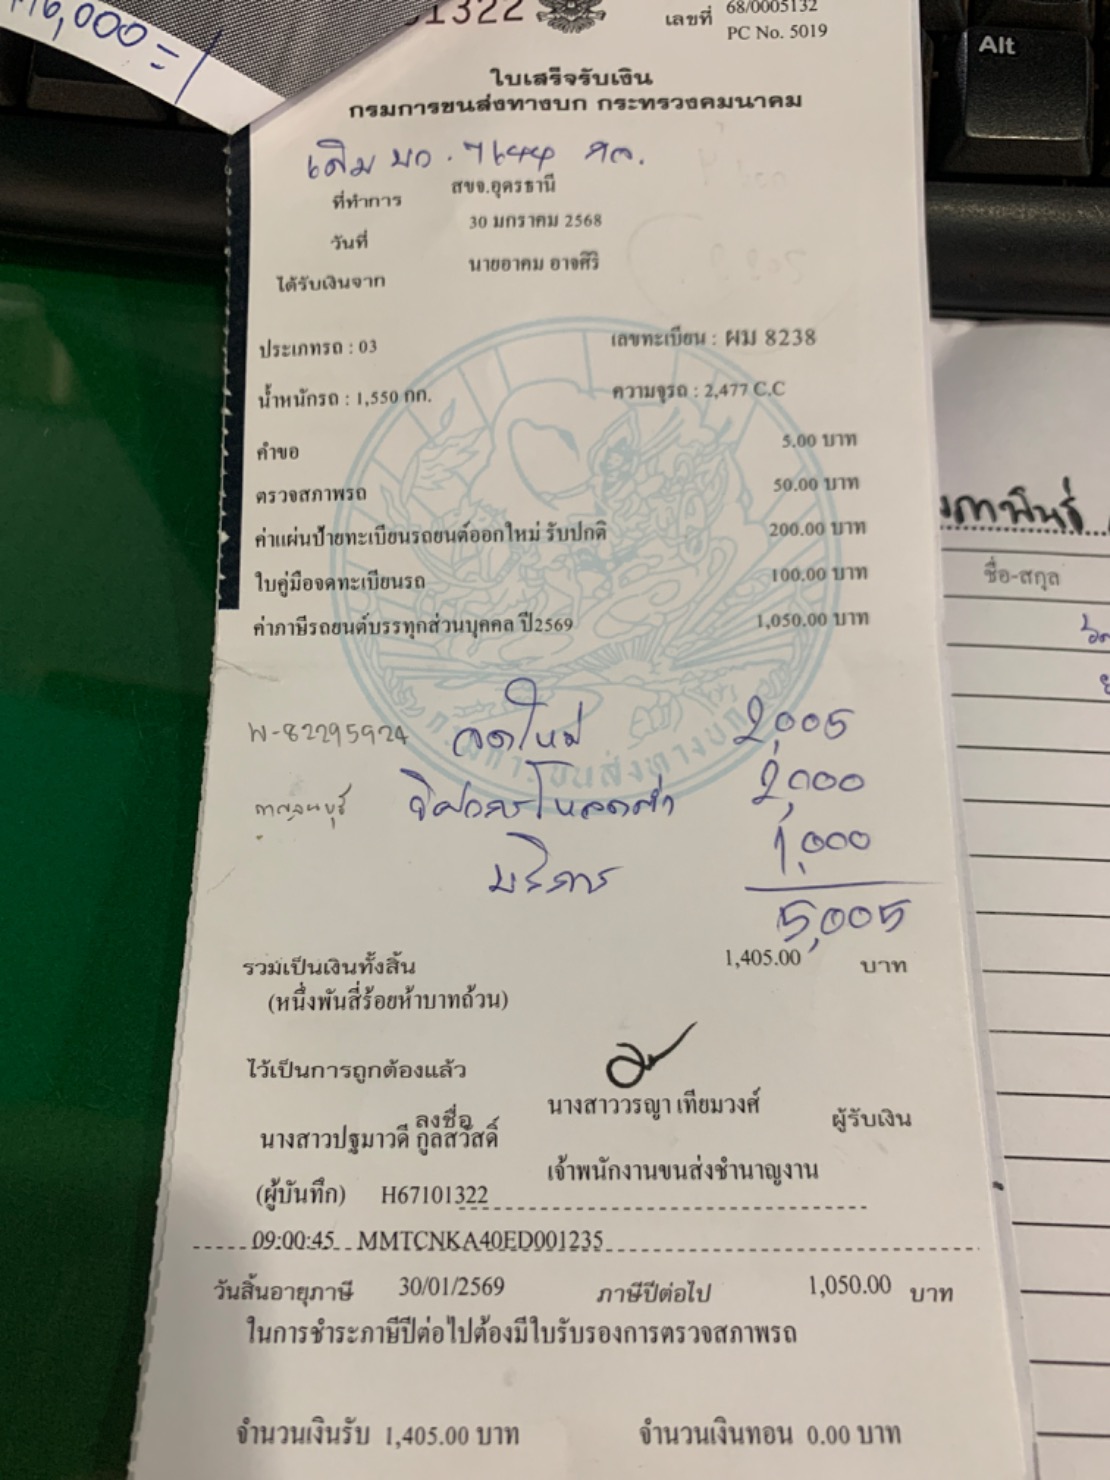 16,000 = /
1322
เลขที่ 68/0005132
PC No. 5019
Alt
ใบเสร็จรับเงิน
กรมการขนส่งทางบก กระทรวงคมนาคม
เดิม บว. 7644 ศก.
ที่ทำการ สขจ.อุดรธานี
วันที่ 30 มกราคม 2568
ได้รับเงินจาก นายอาคม อาจศิริ
ประเภทรถ : 03 เลขทะเบียน : ผม 8238
น้ำหนักรถ : 1,550 กก. ความจุรถ : 2,477 C.C
คำขอ 5.00 บาท
ตรวจสภาพรถ 50.00 บาท
ค่าแผ่นป้ายทะเบียนรถยนต์ออกใหม่ รับปกติ 200.00 บาท
ใบคู่มือจดทะเบียนรถ 100.00 บาท
ค่าภาษีรถยนต์บรรทุกส่วนบุคคล ปี2569 1,050.00 บาท
กรมการขนส่งทางบก
W-82295924 จดใหม่ 2,005
กาญจนบุรี วิศวกรโหลดต่ำ 2,000
บริการ 1,000
5,005
รวมเป็นเงินทั้งสิ้น 1,405.00 บาท
(หนึ่งพันสี่ร้อยห้าบาทถ้วน)
ไว้เป็นการถูกต้องแล้ว
ลงชื่อ นางสาววรญา เทียมวงศ์ ผู้รับเงิน
นางสาวปฐมาวดี กูลสวัสดิ์
เจ้าพนักงานขนส่งชำนาญงาน
(ผู้บันทึก) H67101322
09:00:45 MMTCNKA40ED001235
วันสิ้นอายุภาษี 30/01/2569 ภาษีปีต่อไป 1,050.00 บาท
ในการชำระภาษีปีต่อไปต้องมีใบรับรองการตรวจสภาพรถ
จำนวนเงินรับ 1,405.00 บาท จำนวนเงินทอน 0.00 บาท
ชื่อ-สกุล